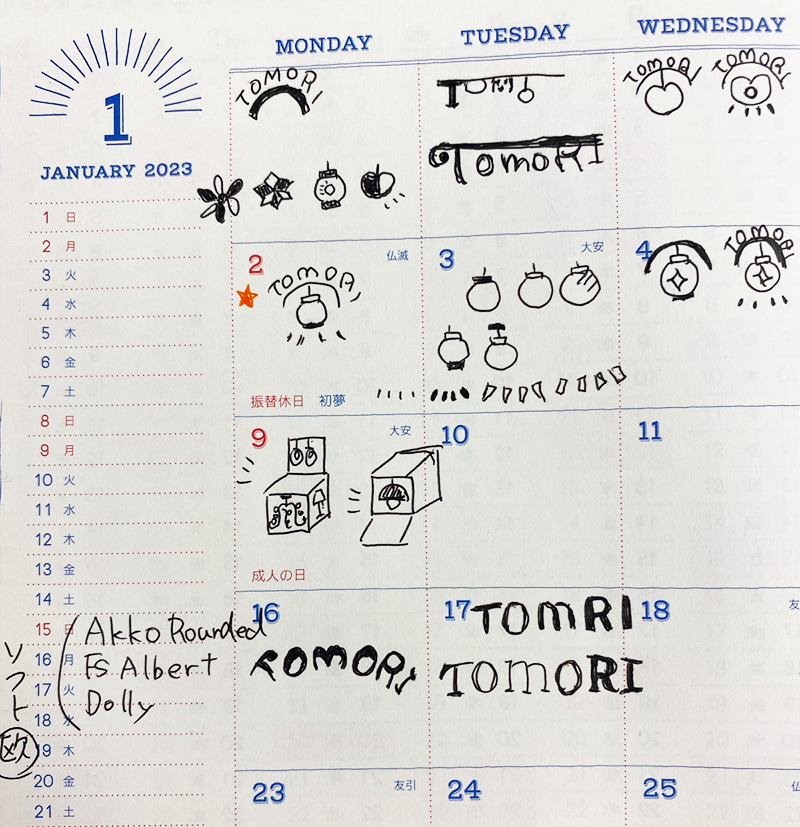 1
JANUARY 2023
1 日
2 月
3 火
4 水
5 木
6 金
7 土
8 日
9 月
10 火
11 水
12 木
13 金
14 土
15 日
16 月
17 火
18 水
19 木
20 金
21 土
ソフト
欧
Akko Rounded
FS Albert
Dolly
MONDAY TUESDAY WEDNESDAY
TOMORI
TOMORI
TOMORI
TOMORI
2 仏滅
TOMORI
振替休日 初夢
3 大安
4
TOMORI
9 大安
成人の日
10
11
16
TOMORI
17
TOMRI
TOMORI
18 友
23 友引
24
25 仏